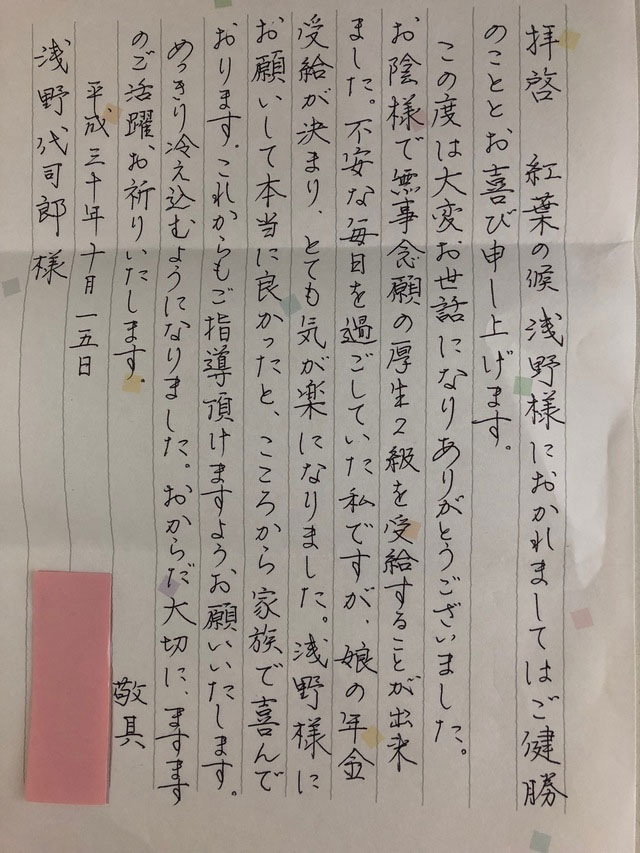 拝啓　紅葉の候 浅野様におかれましてはご健勝
のこととお喜び申し上げます。
この度は大変お世話になりありがとうございました。
お陰様で無事念願の厚生2級を受給することが出来
ました。不安な毎日を過ごしていた私ですが、娘の年金
受給が決まり、とても気が楽になりました。浅野様に
お願いして本当に良かったと、こころから家族で喜んで
おります。これからもご指導頂けますよう、お願いいたします。
めっきり冷え込むようになりました。おからだ大切に、ますます
のご活躍、お祈りいたします。
敬具
平成三十年十月一五日
浅野代司郎様